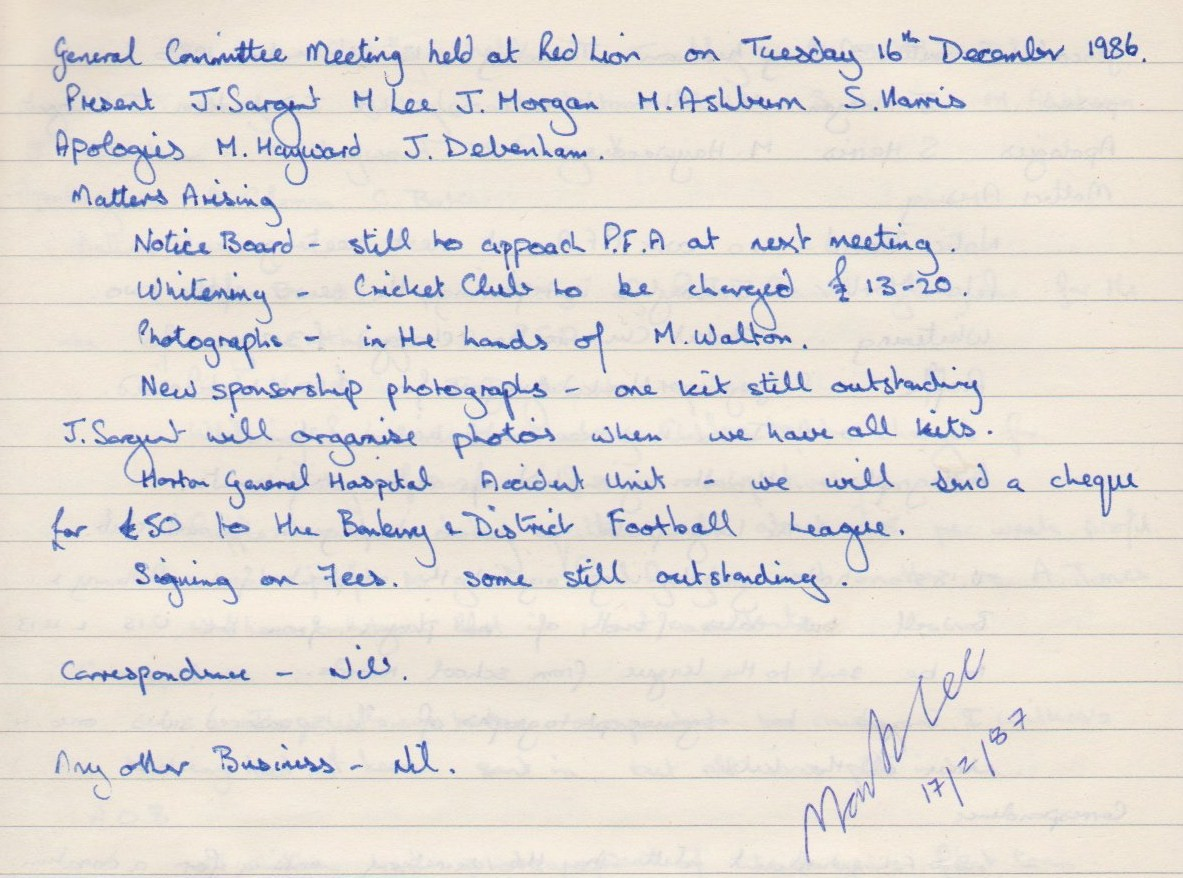 General Committee Meeting held at Red Lion on Tuesday 16th December 1986.
Present J. Sargent M Lee J. Morgan M. Ashburn S. Harris
Apologies M. Hayward J. Debenham.
Matters Arising
Notice Board - still to appoach P.F.A at next meeting.
Whitening - Cricket Club to be charged £13-20.
Photographs - in the hands of M. Walton.
New sponsorship photographs - one kit still outstanding
J. Sargent will organise photos when we have all kits.
Horton General Hospital Accident Unit - we will send a cheque
for £50 to the Banbury & District Football League.
Signing on Fees. some still outstanding.
Correspondence - Nil.
Any other Business - Nil.
Lee
17/2/87